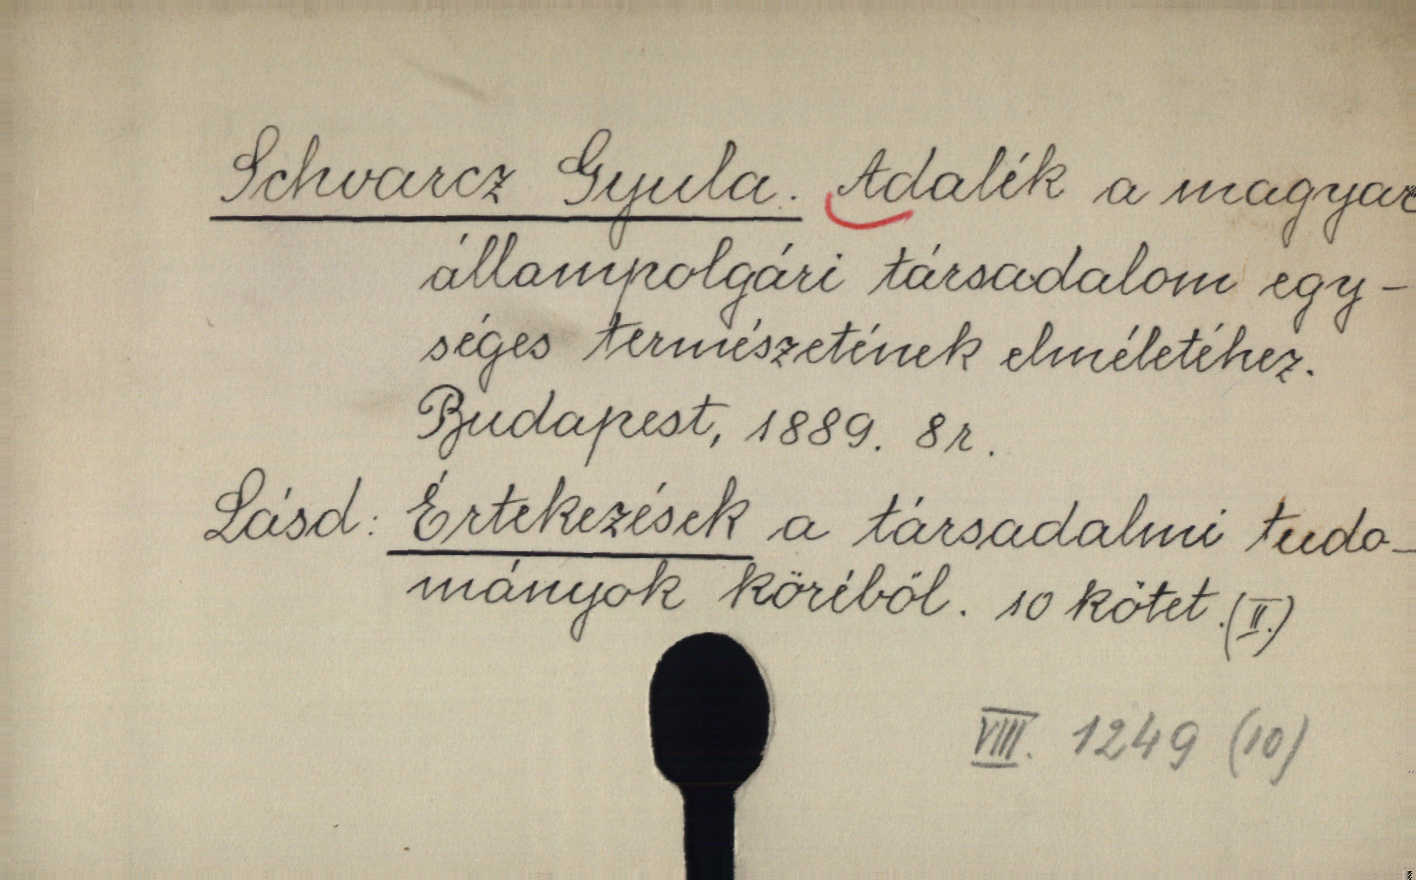 Schvarcz Gyula. Adalék a magyar
állampolgári társadalom egy-
séges természetének elméletéhez.
Budapest, 1889. 8r.
Lásd: Értekezések a társadalmi tudo-
mányok köréből. 10 kötet. (II.)
VIII. 1249 (10)